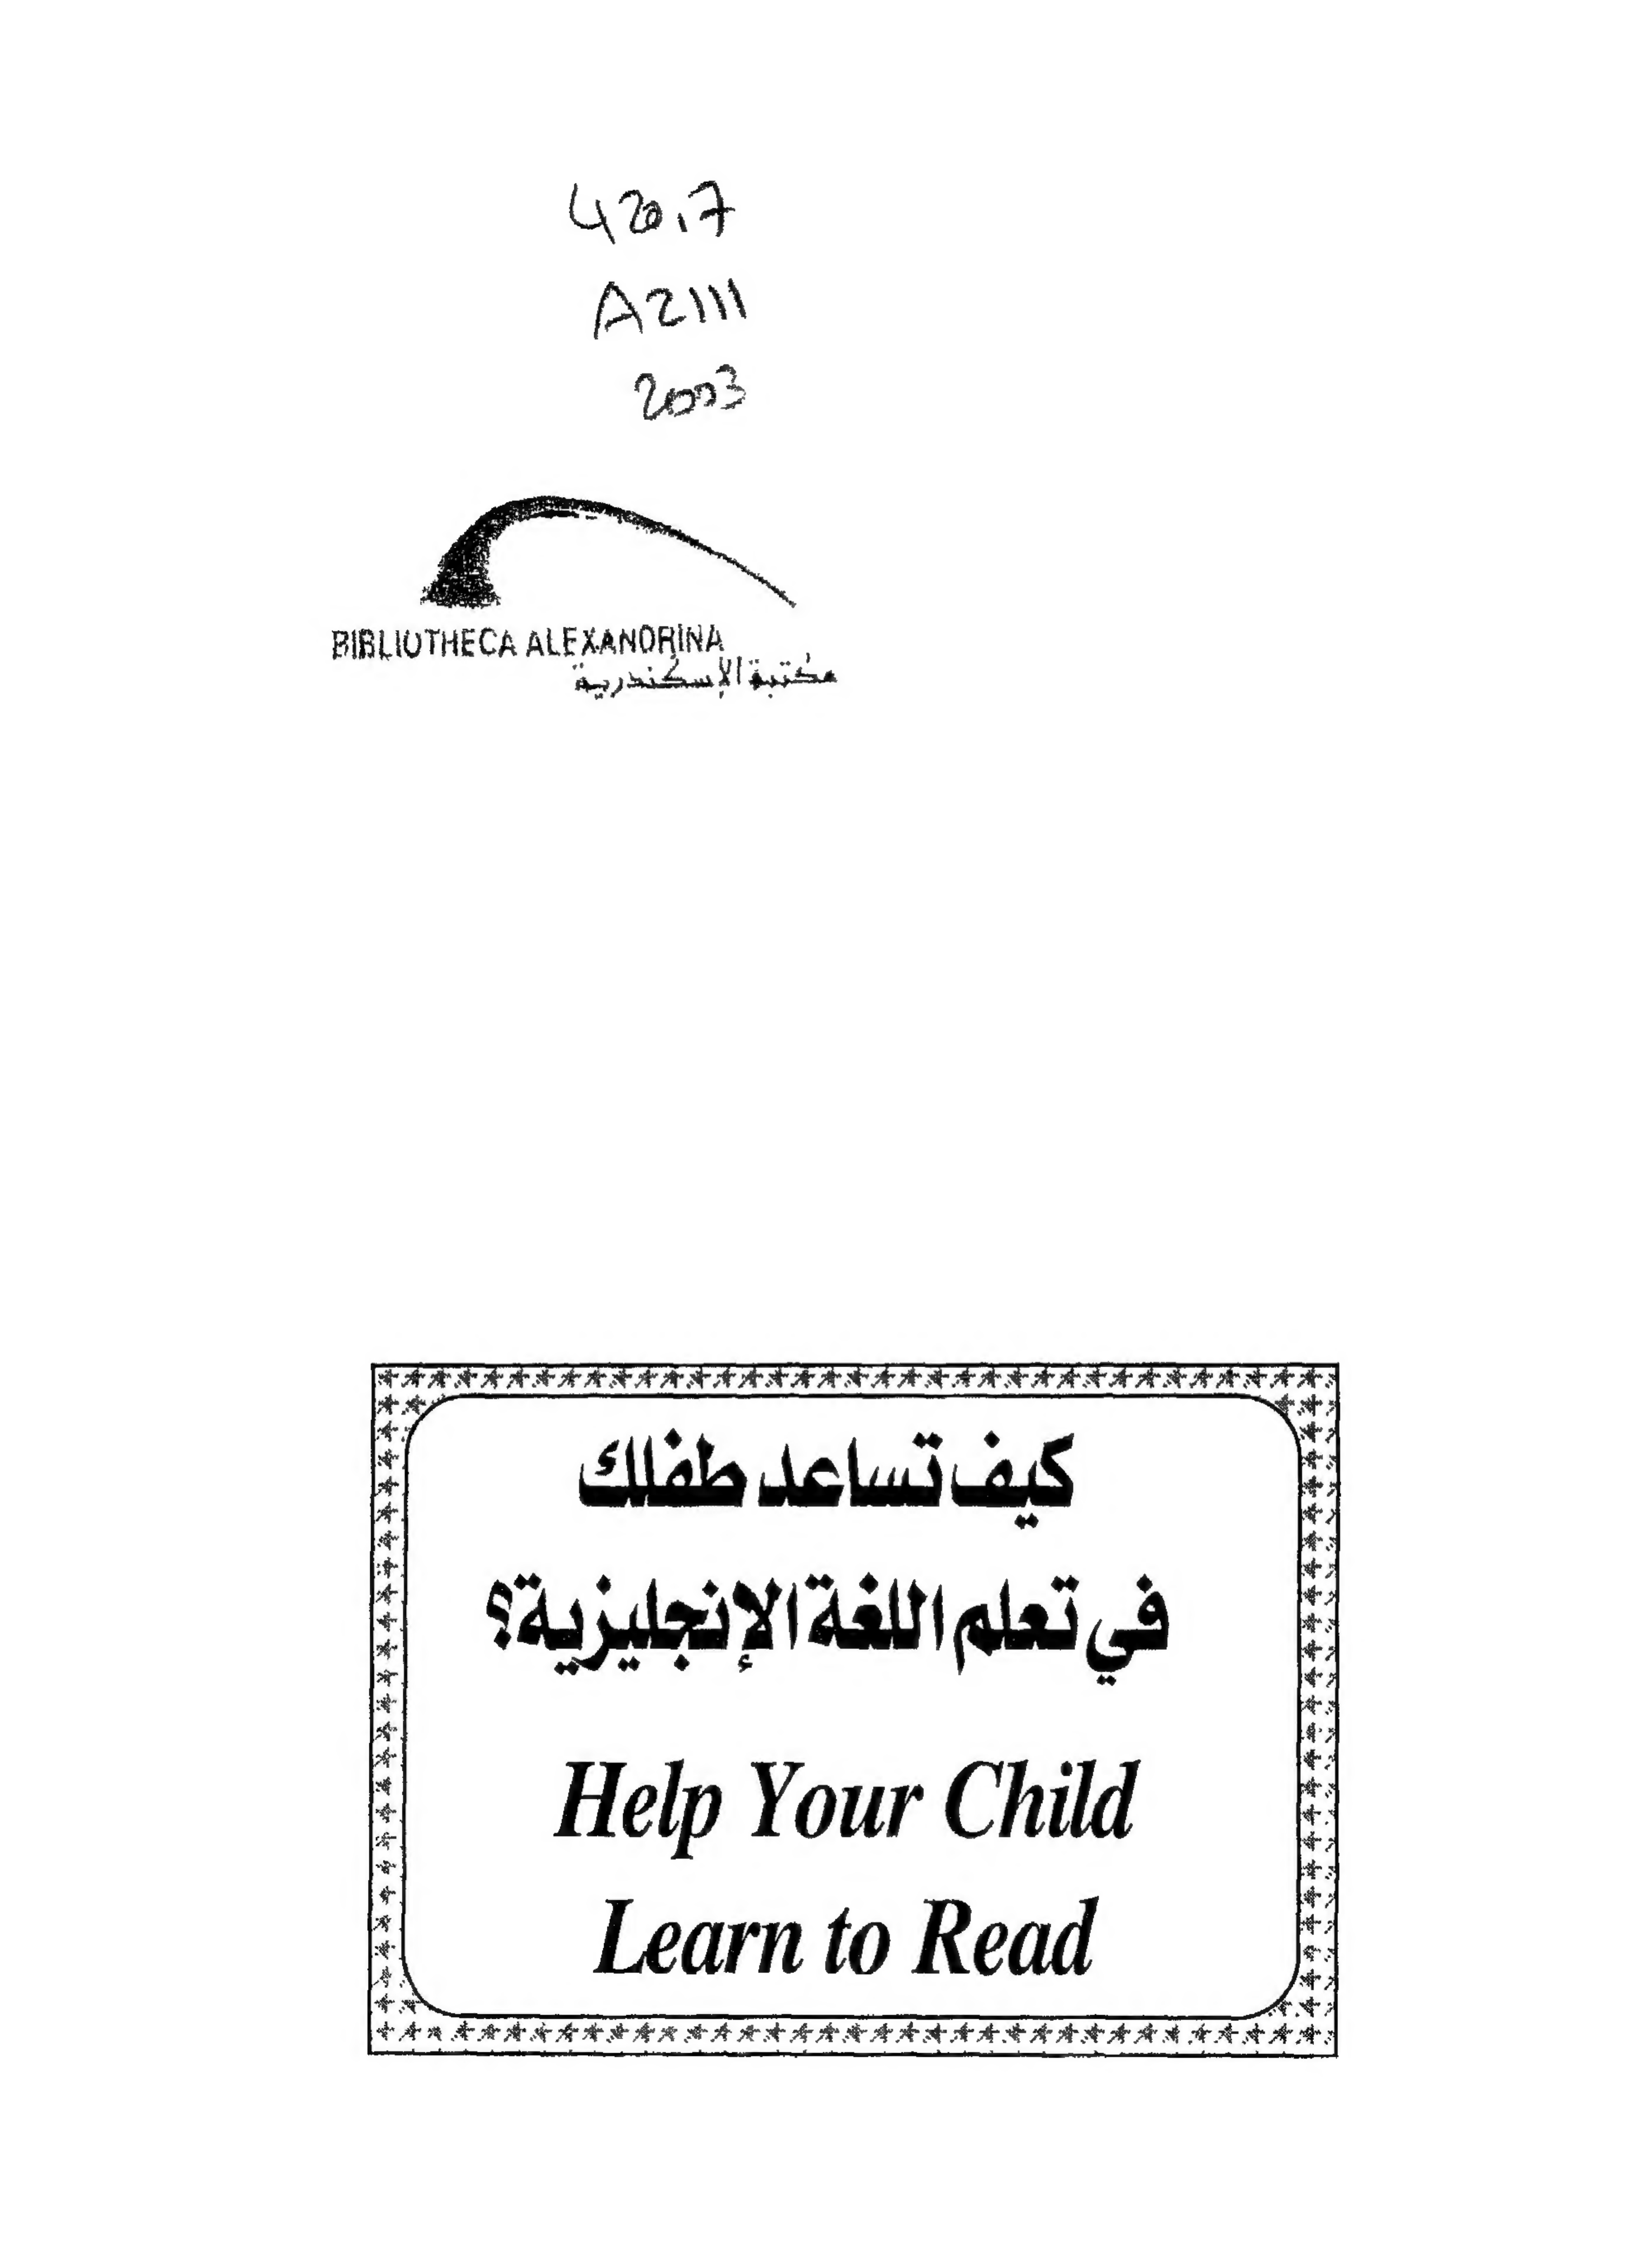 420.7
A2111
2003
BIBLIOTHECA ALEXANDRINA
مكتبة الإسكندرية
كيف تساعد طفلك
في تعلم اللغة الإنجليزية؟
Help Your Child
Learn to Read